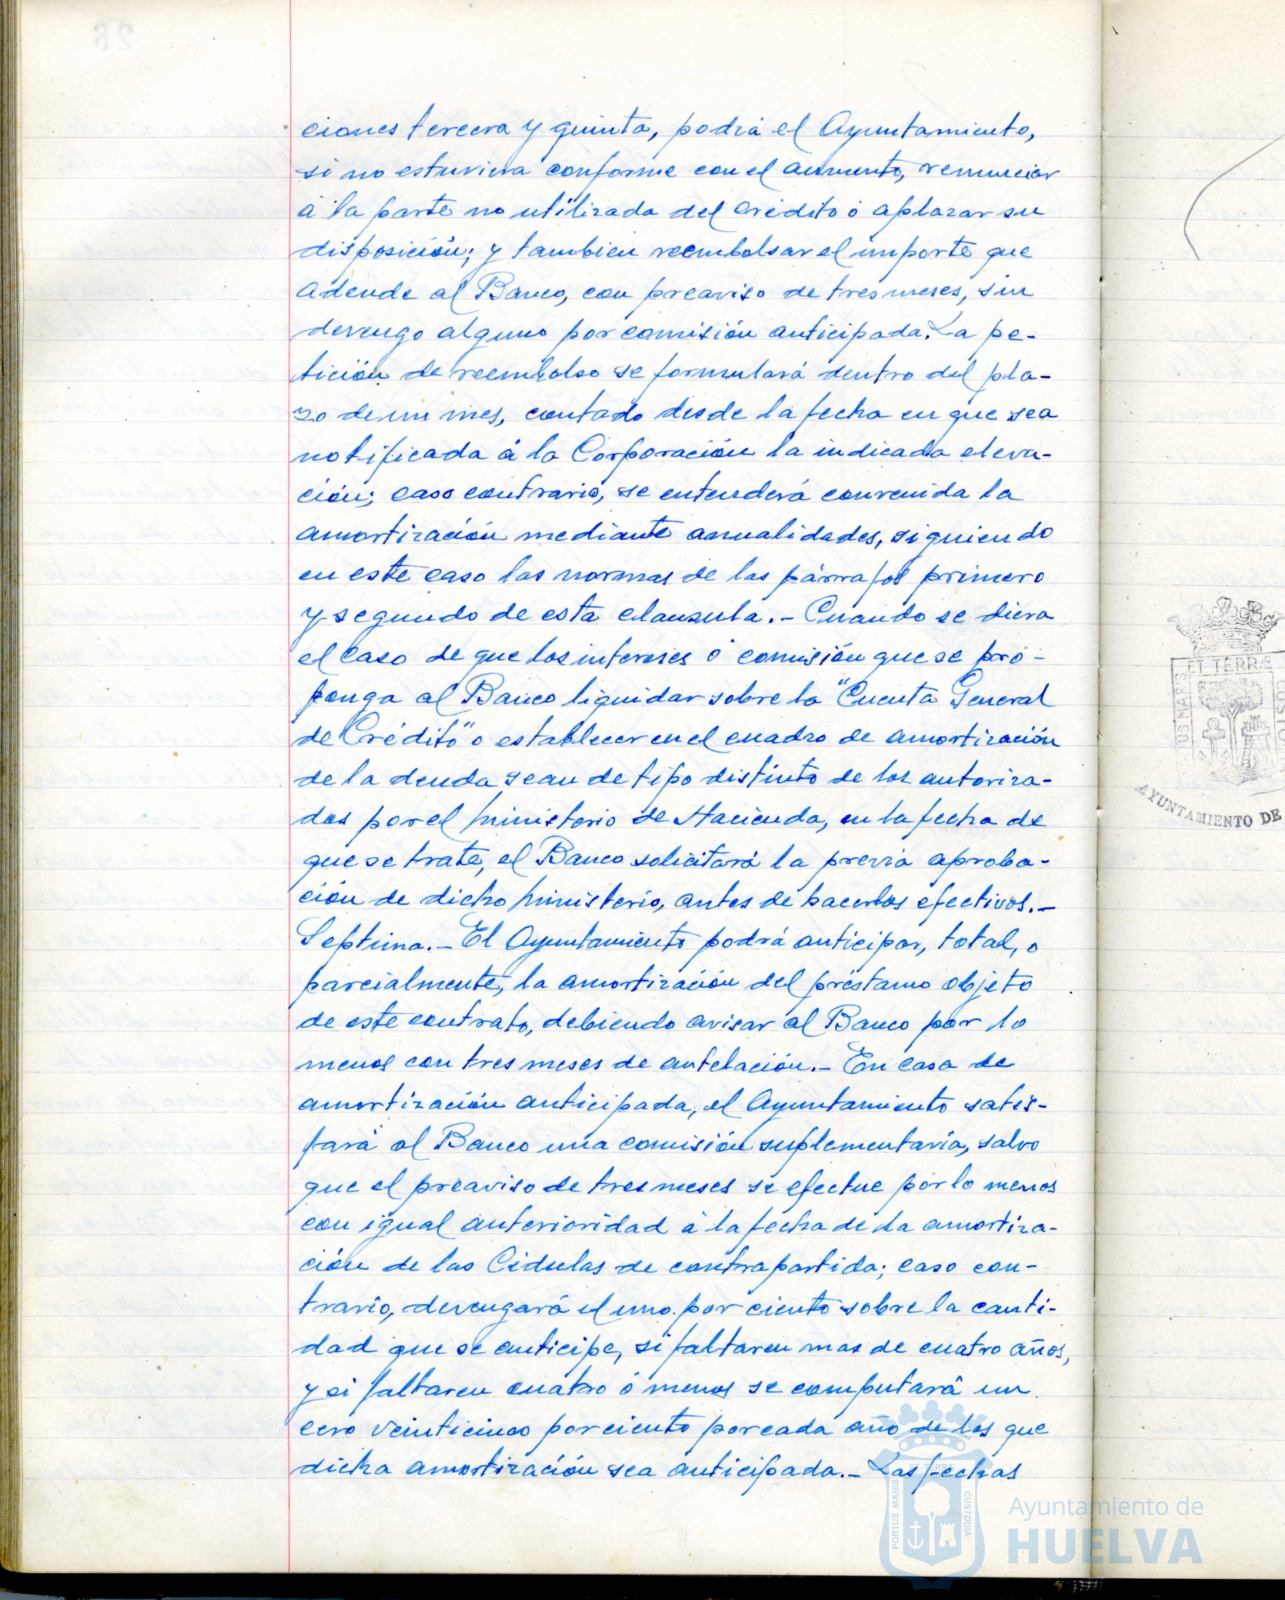 ciones tercera y quinta, podrá el Ayuntamiento,
si no estuviera conforme con el aumento, renunciar
á la parte no utilizada del crédito ó aplazar su
disposición; y tambien reembolsar el importe que
adeude al Banco, con preaviso de tres meses, sin
devengo alguno por comisión anticipada. La pe-
tición de reembolso se formulará dentro del pla-
zo de un mes, contado desde la fecha en que sea
notificada á la Corporación la indicada eleva-
ción; caso contrario, se entenderá convenida la
amortización mediante anualidades, siguiendo
en este caso las normas de los párrafos primero
y segundo de esta clausula.- Cuando se diera
el caso de que los intereses ó comisión que se pro-
ponga al Banco liquidar sobre la "Cuenta General
de Crédito" o establecer en el cuadro de amortización
de la deuda sean de tipo distinto de los autoriza-
dos por el Ministerio de Hacienda, en la fecha de
que se trate, el Banco solicitará la previa aproba-
ción de dicho Ministerio, antes de hacerlos efectivos.-
Septima.- El Ayuntamiento podrá anticipar, total, o
parcialmente, la amortización del préstamo objeto
de este contrato, debiendo avisar al Banco por lo
menos con tres meses de antelación.- En caso de
amortización anticipada, el Ayuntamiento satis-
fará al Banco una comisión suplementaria, salvo
que el preaviso de tres meses se efectue por lo menos
con igual anterioridad á la fecha de la amortiza-
ción de las Cédulas de contrapartida; caso con-
trario, devengará el uno por ciento sobre la canti-
dad que se anticipe, si faltaren mas de cuatro años,
y si faltaren cuatro ó menos se computará un
cero veinticinco por ciento por cada año de los que
dicha amortización sea anticipada.- Las fechas
26
ET TERRÆ
AYUNTAMIENTO DE
PORTUS MARIS
ET TERRÆ
CUSTODIA
Ayuntamiento de
HUELVA